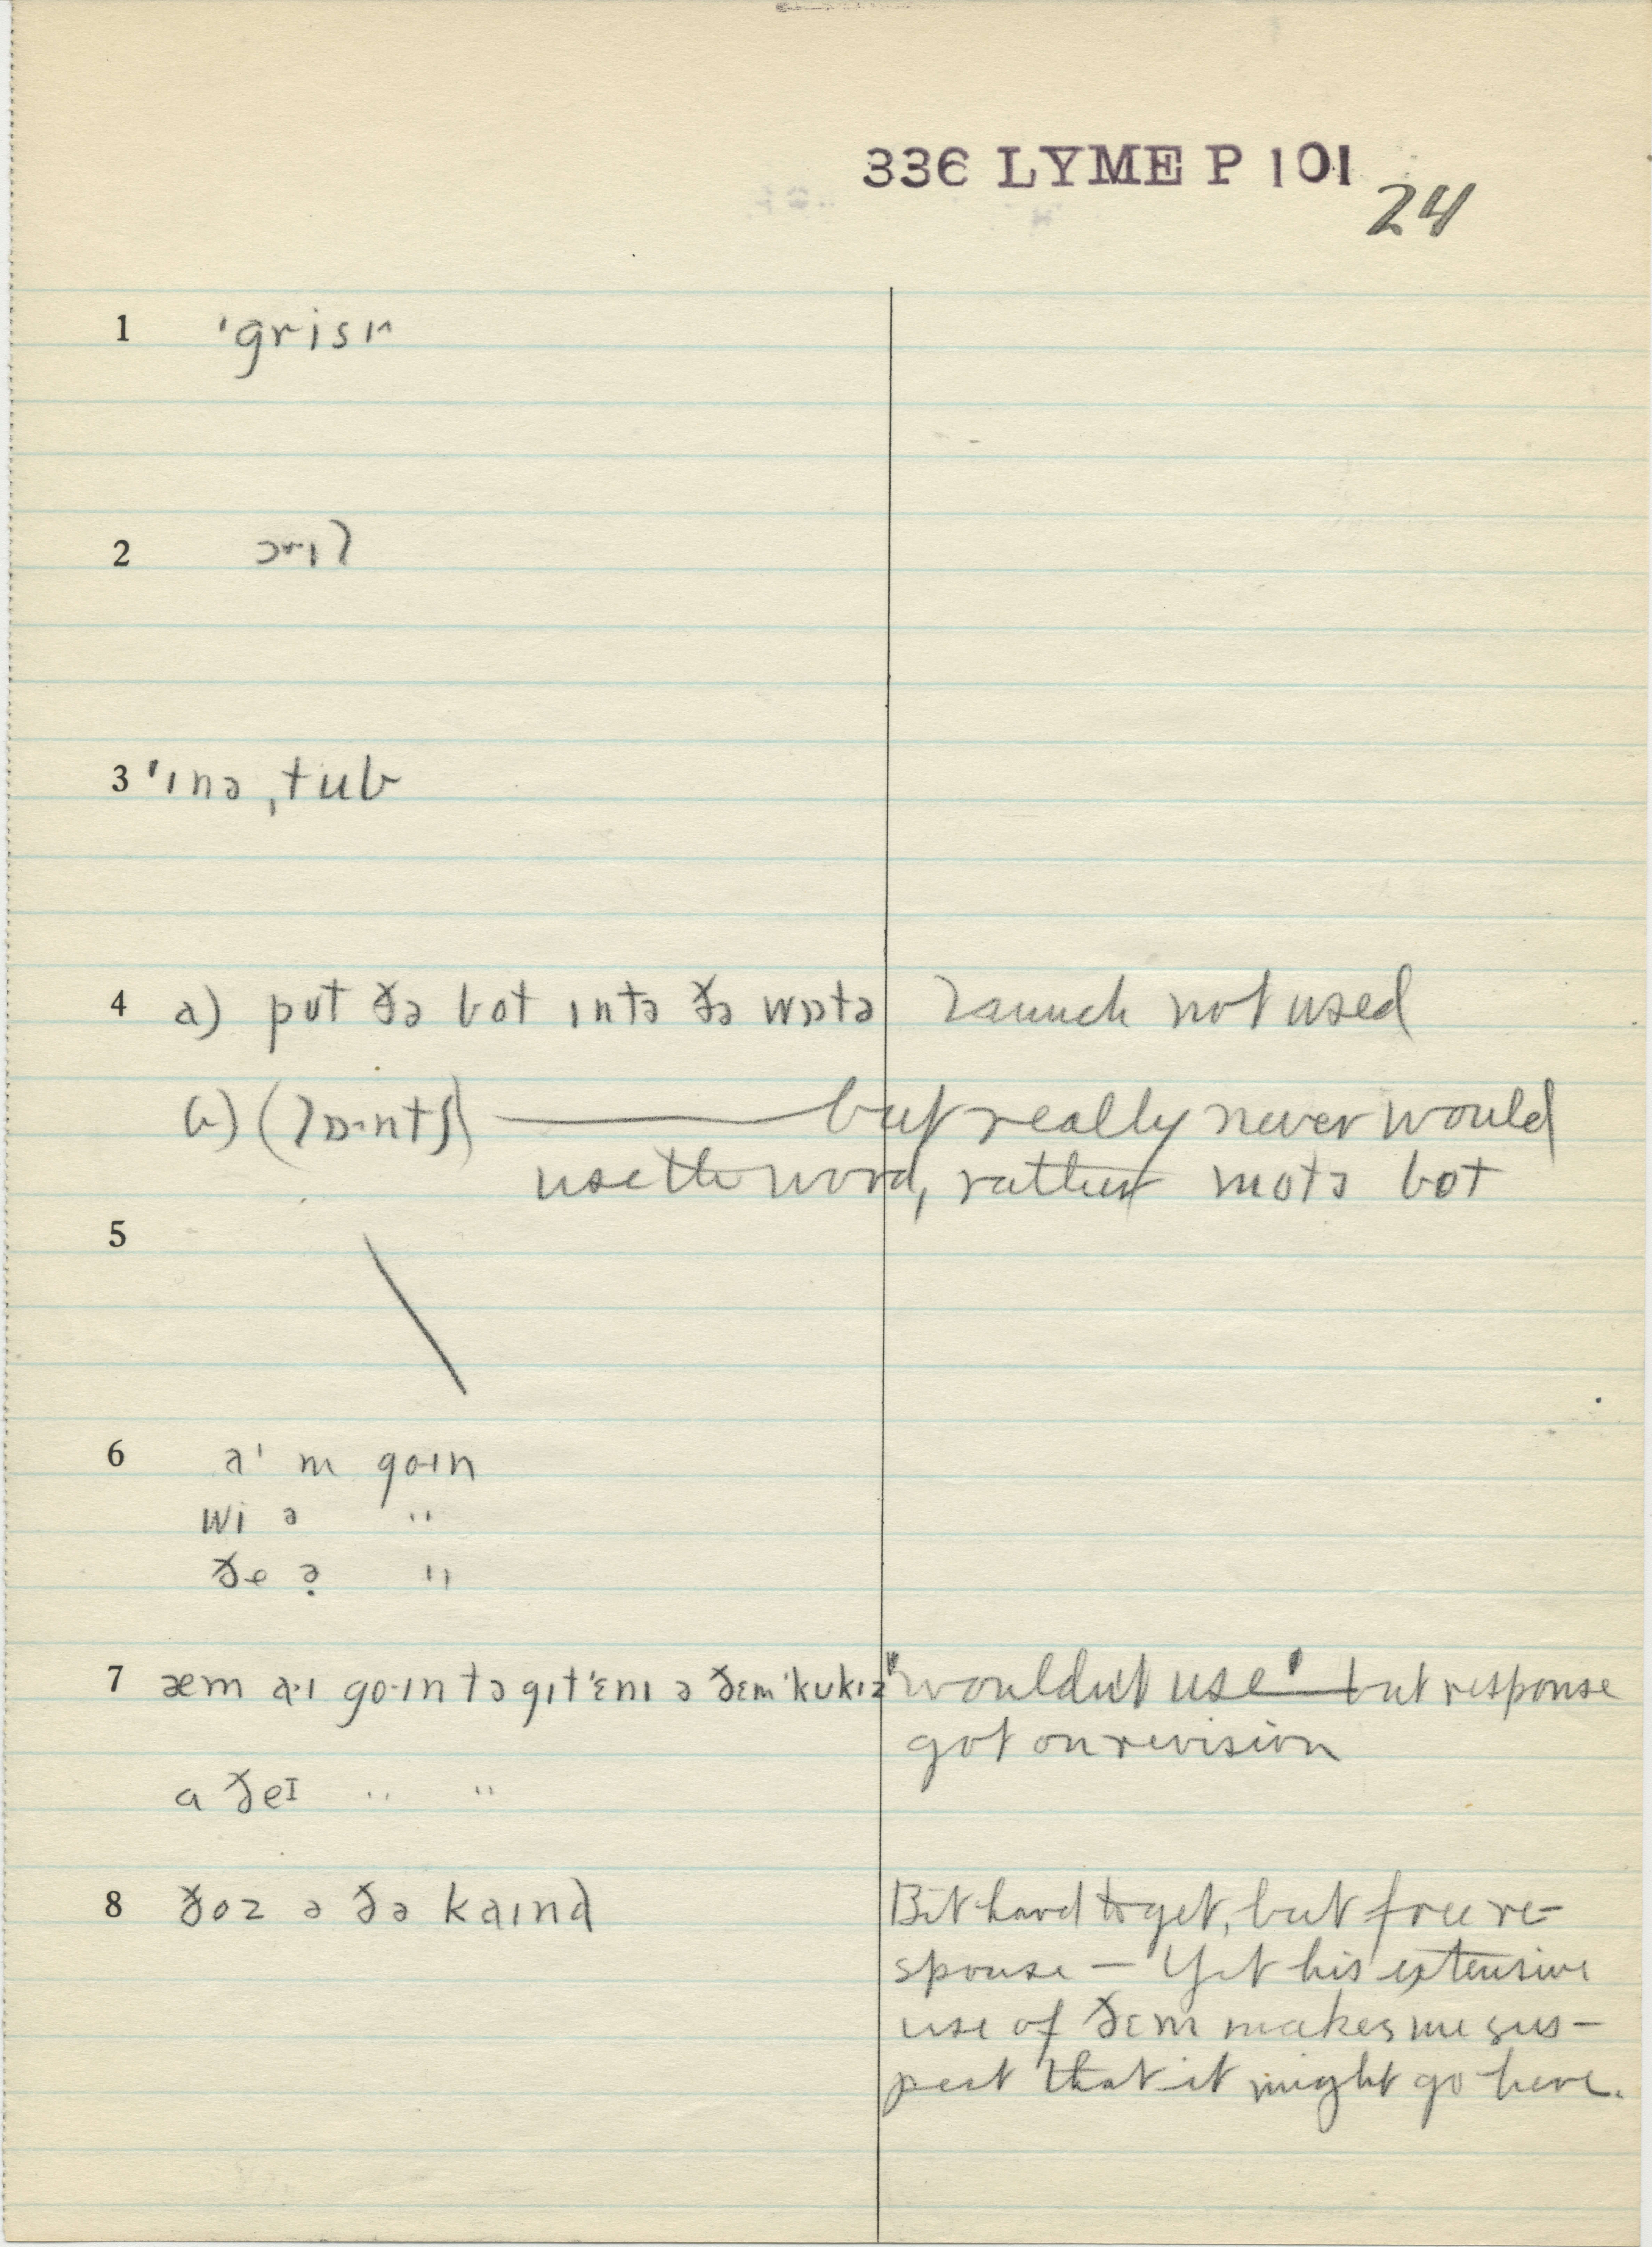 336 LYME P 101
24
1 ˈgrisɪ
2 ɔɪl
3 ˈɪnə ˌtub
4 a) put ðə bot ɪntə ðə wɒtə launch not used
b) (lɒ·ntʃ) — but really never would
use the word, rather motə bot
5
6 aˈ m go·ɪn
wi ə "
ðe ə "
7 æm a·ɪ go·ɪn tə gɪt ˈɛnɪ ə ðɛm ˈkukɪz "wouldn't use" — but response
got on revision
a ðeɪ " "
8 ðoz ə ðə kaɪnd Bit hard to get, but free re-
sponse — Yet his extensive
use of ðɛm makes me sus-
pect that it might go here.